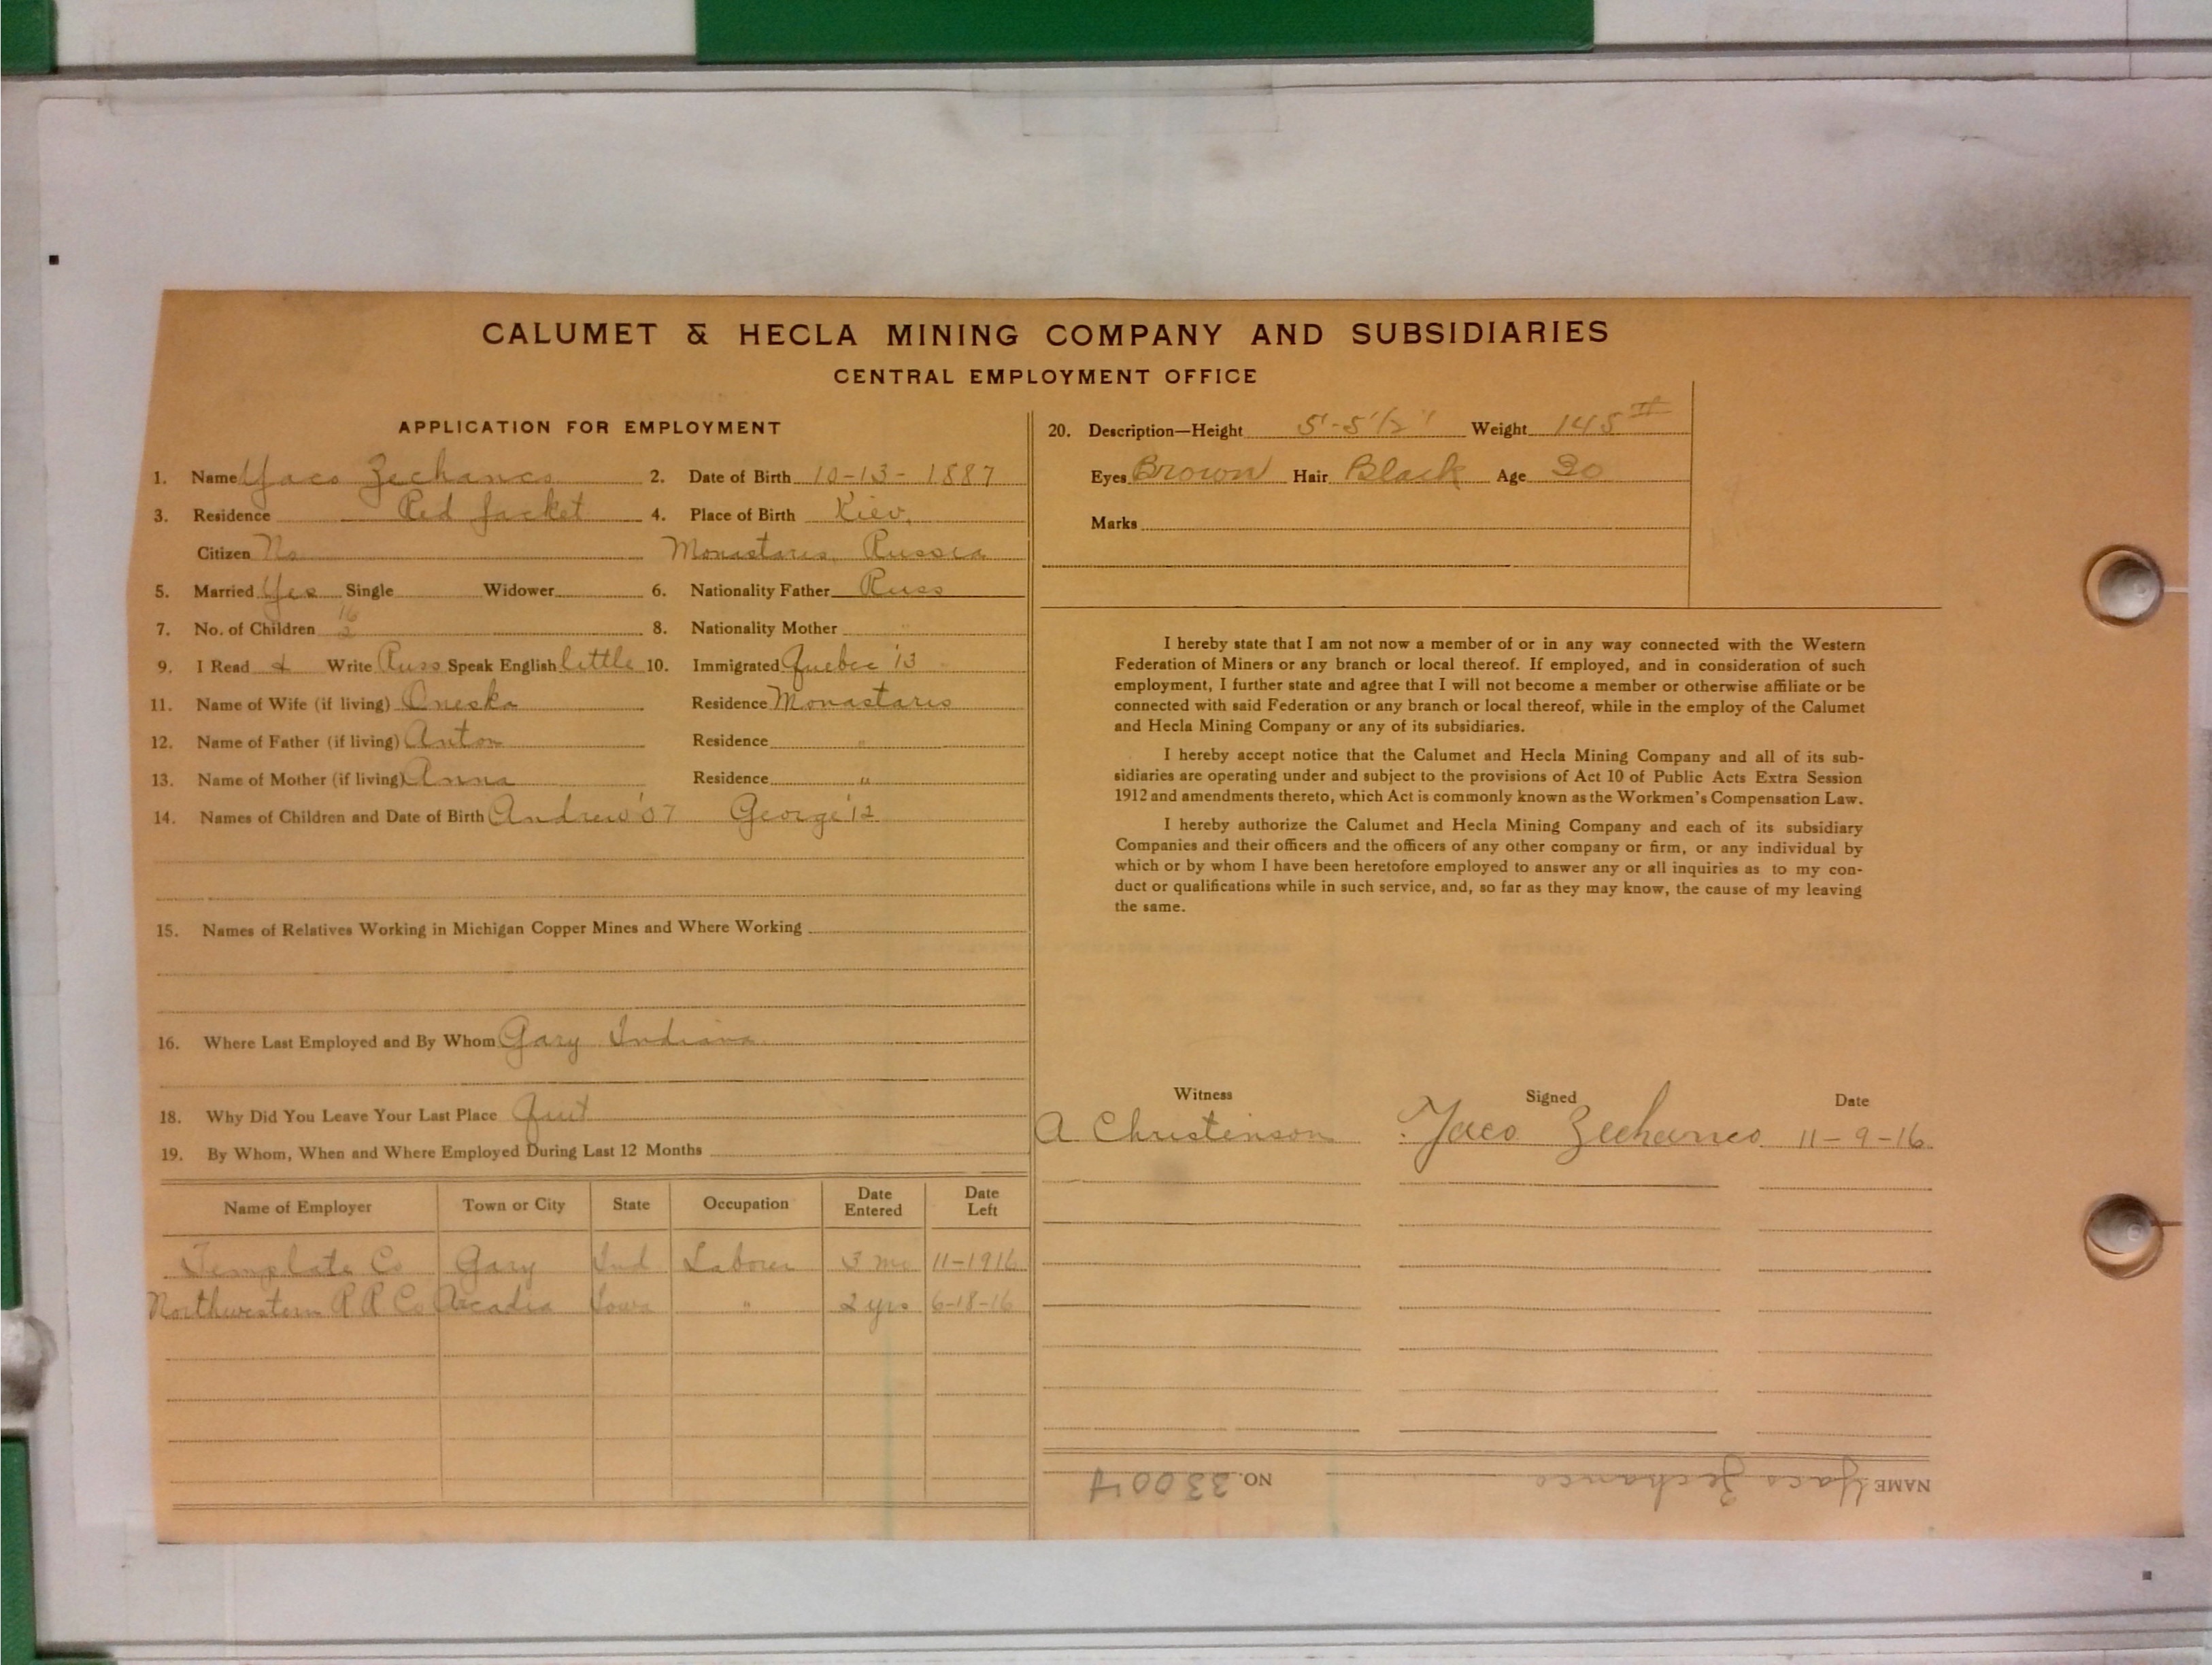 CALUMET & HECLA MINING COMPANY AND SUBSIDIARIES
CENTRAL EMPLOYMENT OFFICE
APPLICATION FOR EMPLOYMENT
1. Name Yaco Zechanco 2. Date of Birth 10-13-1887
3. Residence Red Jacket 4. Place of Birth Kiev,
Citizen No Monastaris, Russia
5. Married Yes Single Widower 6. Nationality Father Russ
16
7. No. of Children 2 8. Nationality Mother "
9. I Read & Write Russ Speak English little 10. Immigrated Quebec '13
11. Name of Wife (if living) Oneska Residence Monastaris
12. Name of Father (if living) Anton Residence "
13. Name of Mother (if living) Anna Residence "
14. Names of Children and Date of Birth Andrew '07 George '12
15. Names of Relatives Working in Michigan Copper Mines and Where Working
16. Where Last Employed and By Whom Gary Indiana
18. Why Did You Leave Your Last Place Quit
19. By Whom, When and Where Employed During Last 12 Months
Name of Employer Town or City State Occupation Date Entered Date Left
Template Co Gary Ind Laborer 3 mo 11-1916
Northwestern R R Co Arcadia Iowa " 2 yrs 6-18-16
20. Description—Height 5'-5 1/2" Weight 145 #
Eyes Brown Hair Black Age 30
Marks
I hereby state that I am not now a member of or in any way connected with the Western
Federation of Miners or any branch or local thereof. If employed, and in consideration of such
employment, I further state and agree that I will not become a member or otherwise affiliate or be
connected with said Federation or any branch or local thereof, while in the employ of the Calumet
and Hecla Mining Company or any of its subsidiaries.
I hereby accept notice that the Calumet and Hecla Mining Company and all of its sub-
sidiaries are operating under and subject to the provisions of Act 10 of Public Acts Extra Session
1912 and amendments thereto, which Act is commonly known as the Workmen's Compensation Law.
I hereby authorize the Calumet and Hecla Mining Company and each of its subsidiary
Companies and their officers and the officers of any other company or firm, or any individual by
which or by whom I have been heretofore employed to answer any or all inquiries as to my con-
duct or qualifications while in such service, and, so far as they may know, the cause of my leaving
the same.
Witness Signed Date
A Christenson Yaco Zechanco 11-9-16
NAME Yaco Zechanco NO. 33004